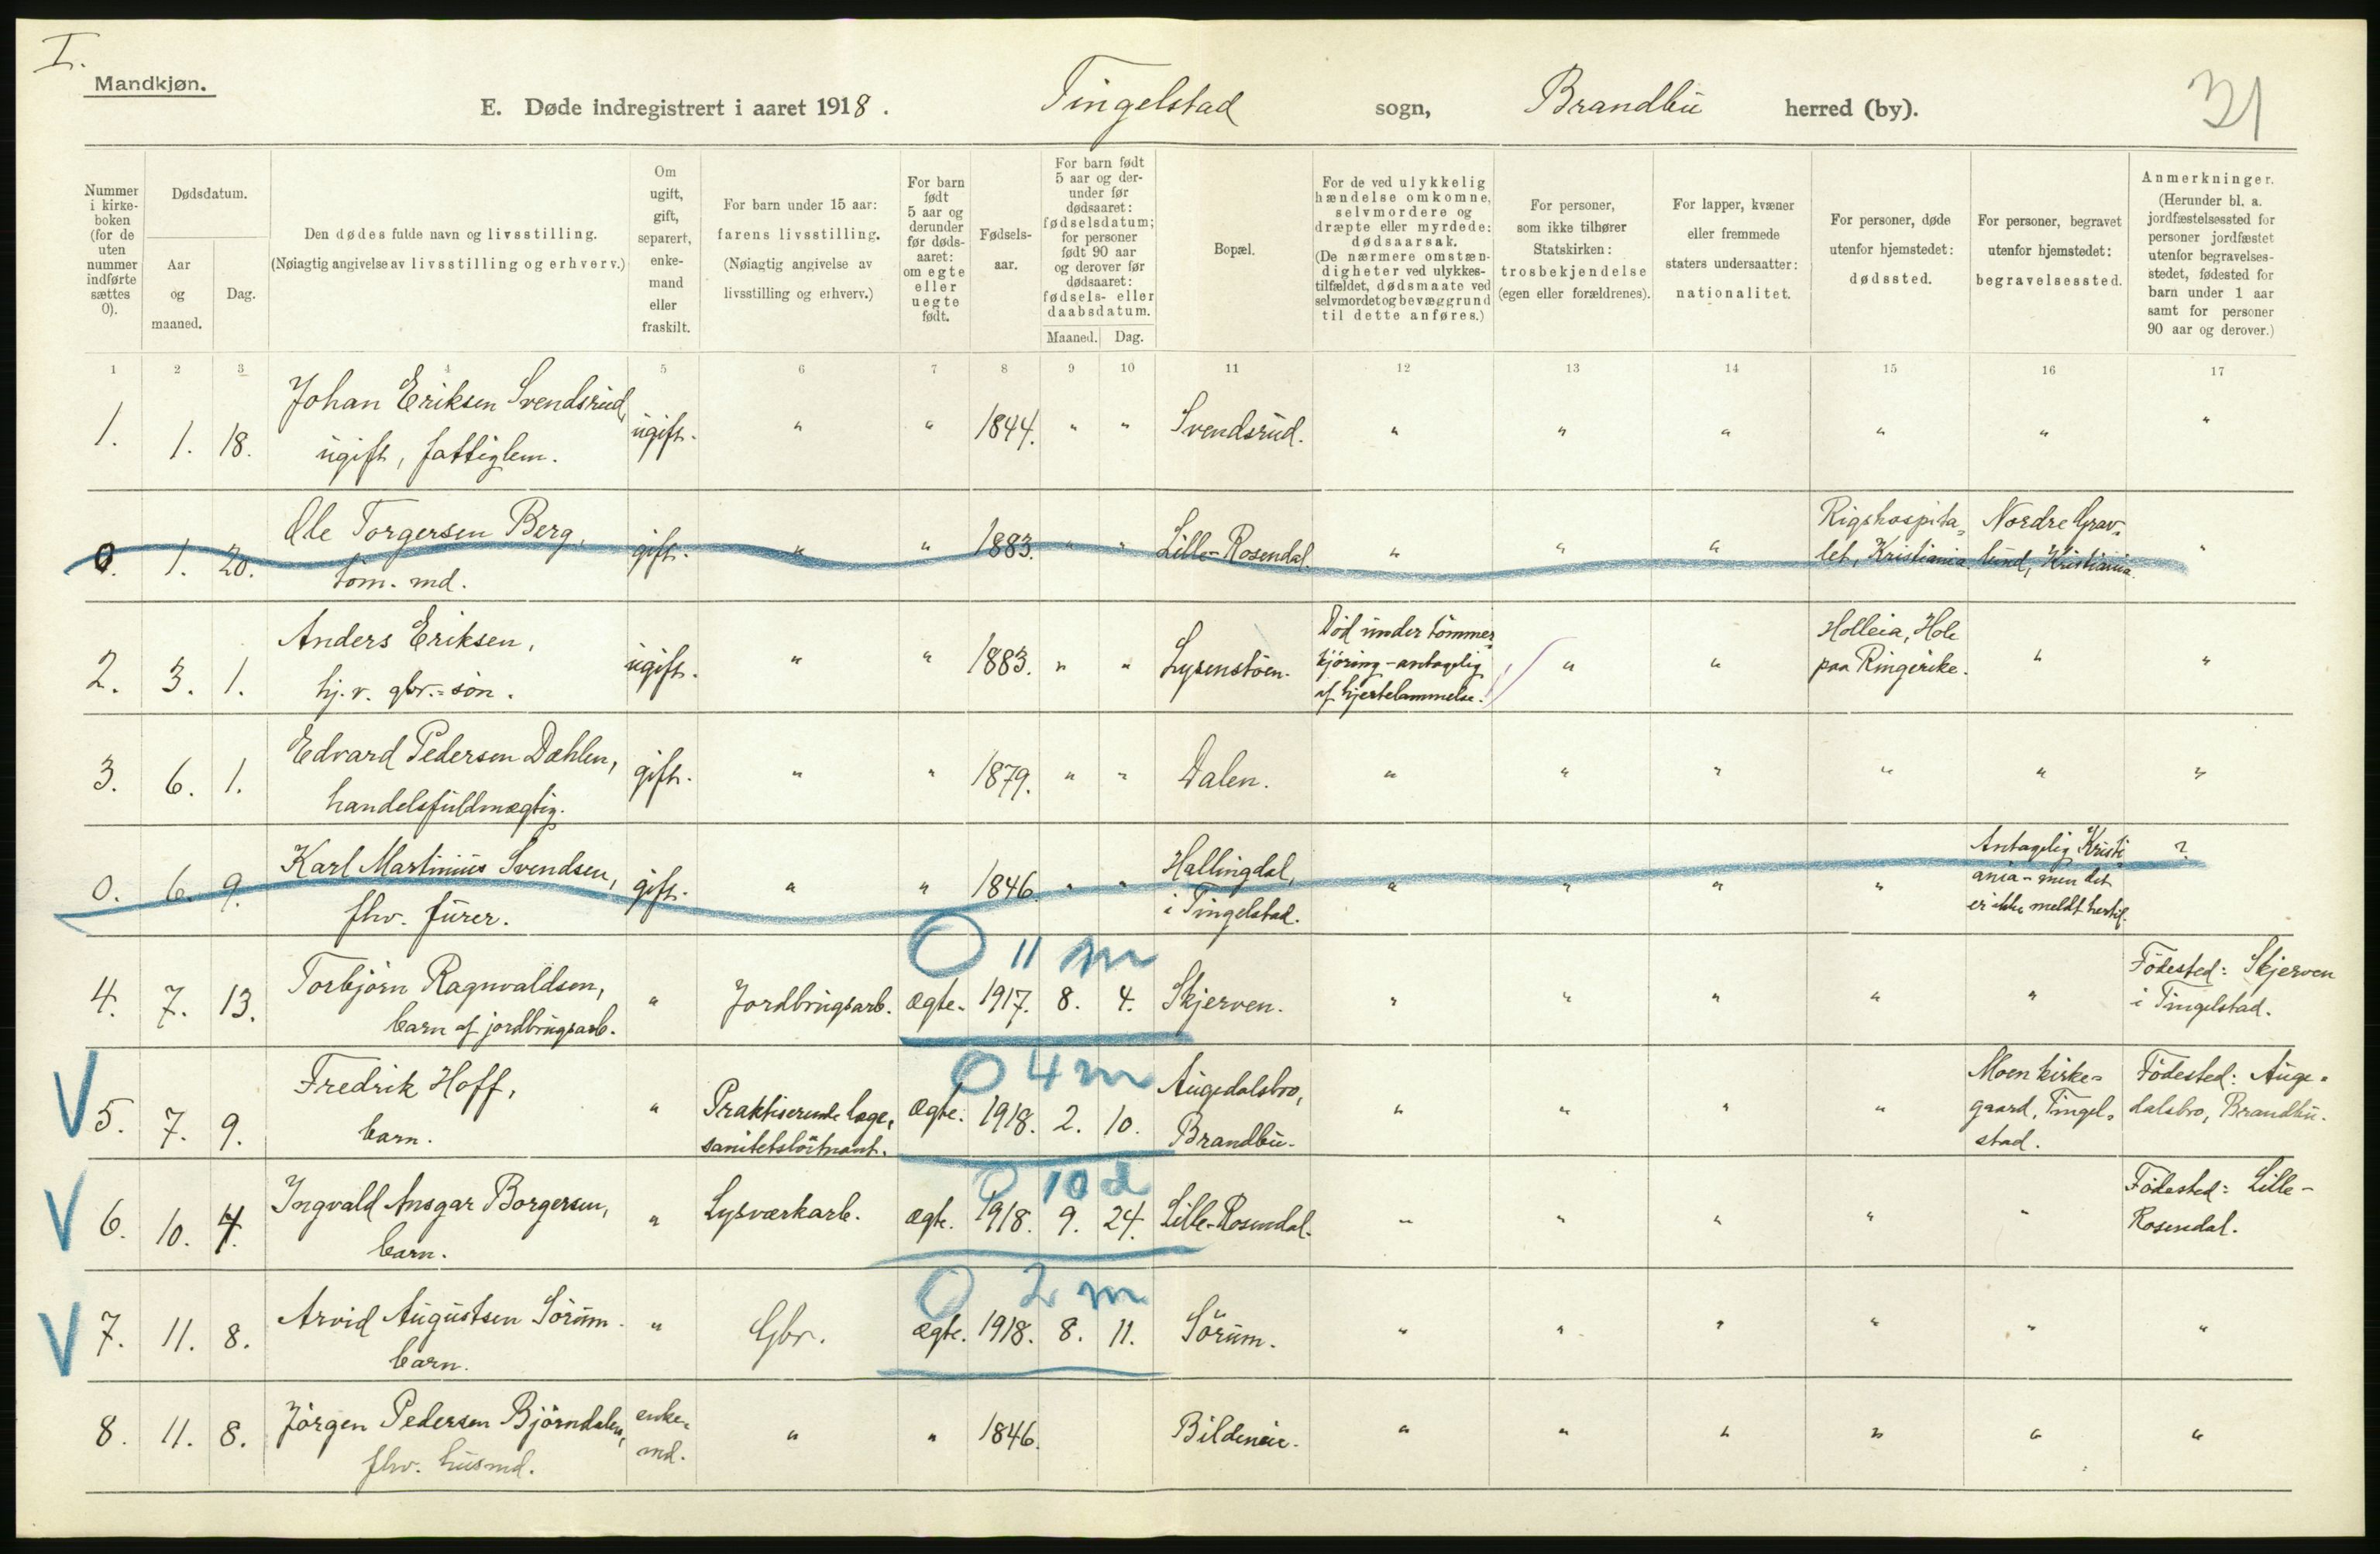 I.
Mandkjøn.
E. Døde indregistrert i aaret 1918. Tingelstad sogn, Brandbu herred (by).
31
Nummer i kirke-boken (for de uten nummer indførte sættes 0).
Dødsdatum.
Aar og maaned.
Dag.
Den dødes fulde navn og livsstilling.
(Nøiagtig angivelse av livsstilling og erhverv.)
Om ugift, gift, separert, enke-mand eller fraskilt.
For barn under 15 aar: farens livsstilling. (Nøiagtig angivelse av livsstilling og erhverv.)
For barn født 5 aar og derunder før døds-aaret: om egte eller uegte født.
Fødsels-aar.
For barn født 5 aar og der-under før dødsaaret: fødselsdatum; for personer født 90 aar og derover før dødsaaret: fødsels- eller daabsdatum.
Maaned. Dag.
Bopæl.
For de ved ulykkelig hændelse omkomne, selvmordere og dræpte eller myrdede: dødsaarsak. (De nærmere omstæn-digheter ved ulykkes-tilfældet, dødsmaate ved selvmordet og bevæggrund til dette anføres.)
For personer, som ikke tilhører Statskirken: trosbekjendelse (egen eller forældrenes).
For lapper, kvæner eller fremmede staters undersaatter: nationalitet.
For personer, døde utenfor hjemstedet: dødssted.
For personer, begravet utenfor hjemstedet: begravelsessted.
Anmerkninger. (Herunder bl. a. jordfæstelsessted for personer jordfæstet utenfor begravelses-stedet, fødested for barn under 1 aar samt for personer 90 aar og derover.)
1 2 3 4 5 6 7 8 9 10 11 12 13 14 15 16 17
1. 1. 18. Johan Eriksen Svendsrud, ugift, fattiglem. ugift. " " 1844. " " Svendsrud. " " " " " "
0. 1. 20. Ole Torgersen Berg, töm. md. gift. " " 1883. " " Lille-Rosendal. " " " Rigshospita-let, Kristiania. Nordre Grav-lund, Kristiania. "
2. 3. 1. Anders Eriksen, hj. v. gbr.-sön. ugift. " " 1883. " " Lysenstöen. Död under tömmer-kjöring - antagelig af hjertelammelse. " " Holleia, Hole paa Ringerike. " "
3. 6. 1. Edvard Pedersen Dæhlen, handelsfuldmægtig. gift. " " 1879. " " Dalen. " " " " " "
0. 6. 9. Karl Martinius Svendsen, fhv. furer. gift. " " 1846. " " Hallingdal, i Tingelstad. " " " " Antagelig Kristi-ania - men det er ikke meldt hertil. ?
0 11 m
4. 7. 13. Torbjörn Ragnvaldsen, barn af jordbrugsarb. " Jordbrugsarb. ægte. 1917. 8. 4. Skjerven. " " " " " Födested: Skjerven i Tingelstad.
0 4 m
V 5. 7. 9. Fredrik Hoff, barn. " Praktiserende læge, sanitetslöitnant. Ægte. 1918. 2. 10. Augedalsbro, Brandbu. " " " " Moen kirke-gaard, Tingel-stad. Födested: Auge-dalsbro, Brandbu.
0 10 d
V 6. 10. 4. Ingvald Ansgar Borgersen, barn. " Lysværkarb. ægte. 1918. 9. 24. Lille-Rosendal. " " " " " Födested: Lille-Rosendal.
0 2 m
V 7. 11. 8. Arvid Augustsen Sörum. barn. " Gbr. ægte. 1918. 8. 11. Sörum. " " " " " "
8. 11. 8. Jörgen Pedersen Björndalen, fhv. husmd. enke-md. " " 1846. Bildeneie. " " " " " "